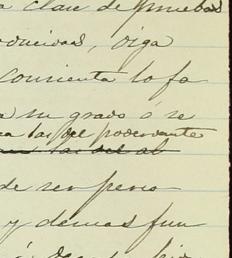 a clase de pruebas
oducidas, oiga
consienta lo fa
a su grado ó se
ea las del poderdante
las del al
de ser perso
y demas fun